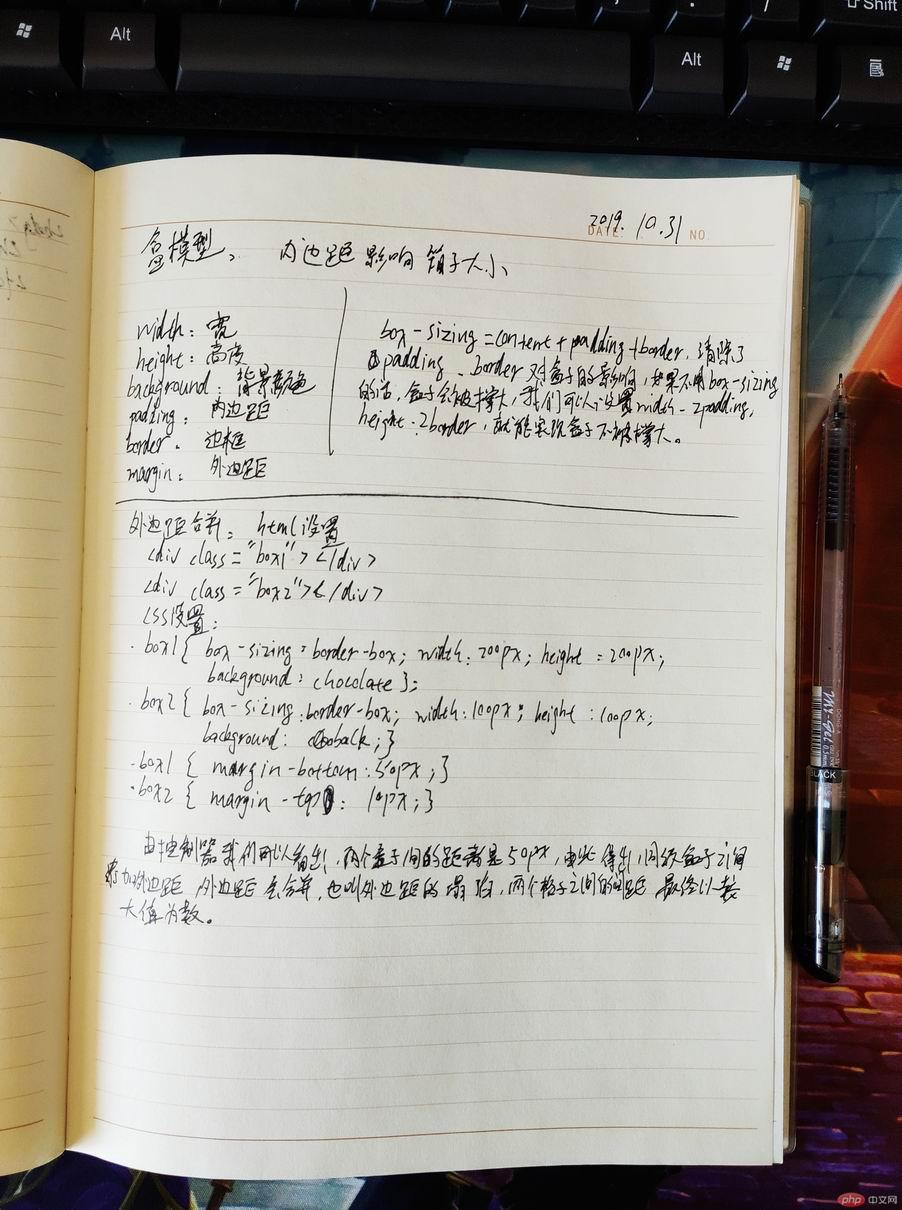 Alt
Alt
Shift
2019. 10.31
DATE: NO
盒模型、 内边距影响箱子大小
width：宽
height：高度
background：背景颜色
padding：内边距
border：边框
margin：外边距
box-sizing=content+padding+border，清除了
padding、border对盒子的影响，如果不用box-sizing
的话，盒子会被撑大，我们可以设置width-2padding,
height-2border，就能实现盒子不被撑大。
外边距合并：html设置
<div class="box1"></div>
<div class="box2"></div>
css设置：
.box1{ box-sizing:border-box; width:200px; height:200px;
background:chocolate};
.box2{ box-sizing:border-box; width:100px; height:100px;
background: ;}
.box1 { margin-bottom:50px;}
.box2 { margin-top: 10px;}
由控制器我们可以看出，两个盒子间的距离是50px，由此得出，同级盒子之间
外边距，外边距会合并，也叫外边距的塌陷，两个盒子之间的间距 最终以较
大值为数。
My-Gel
BLACK
php 中文网